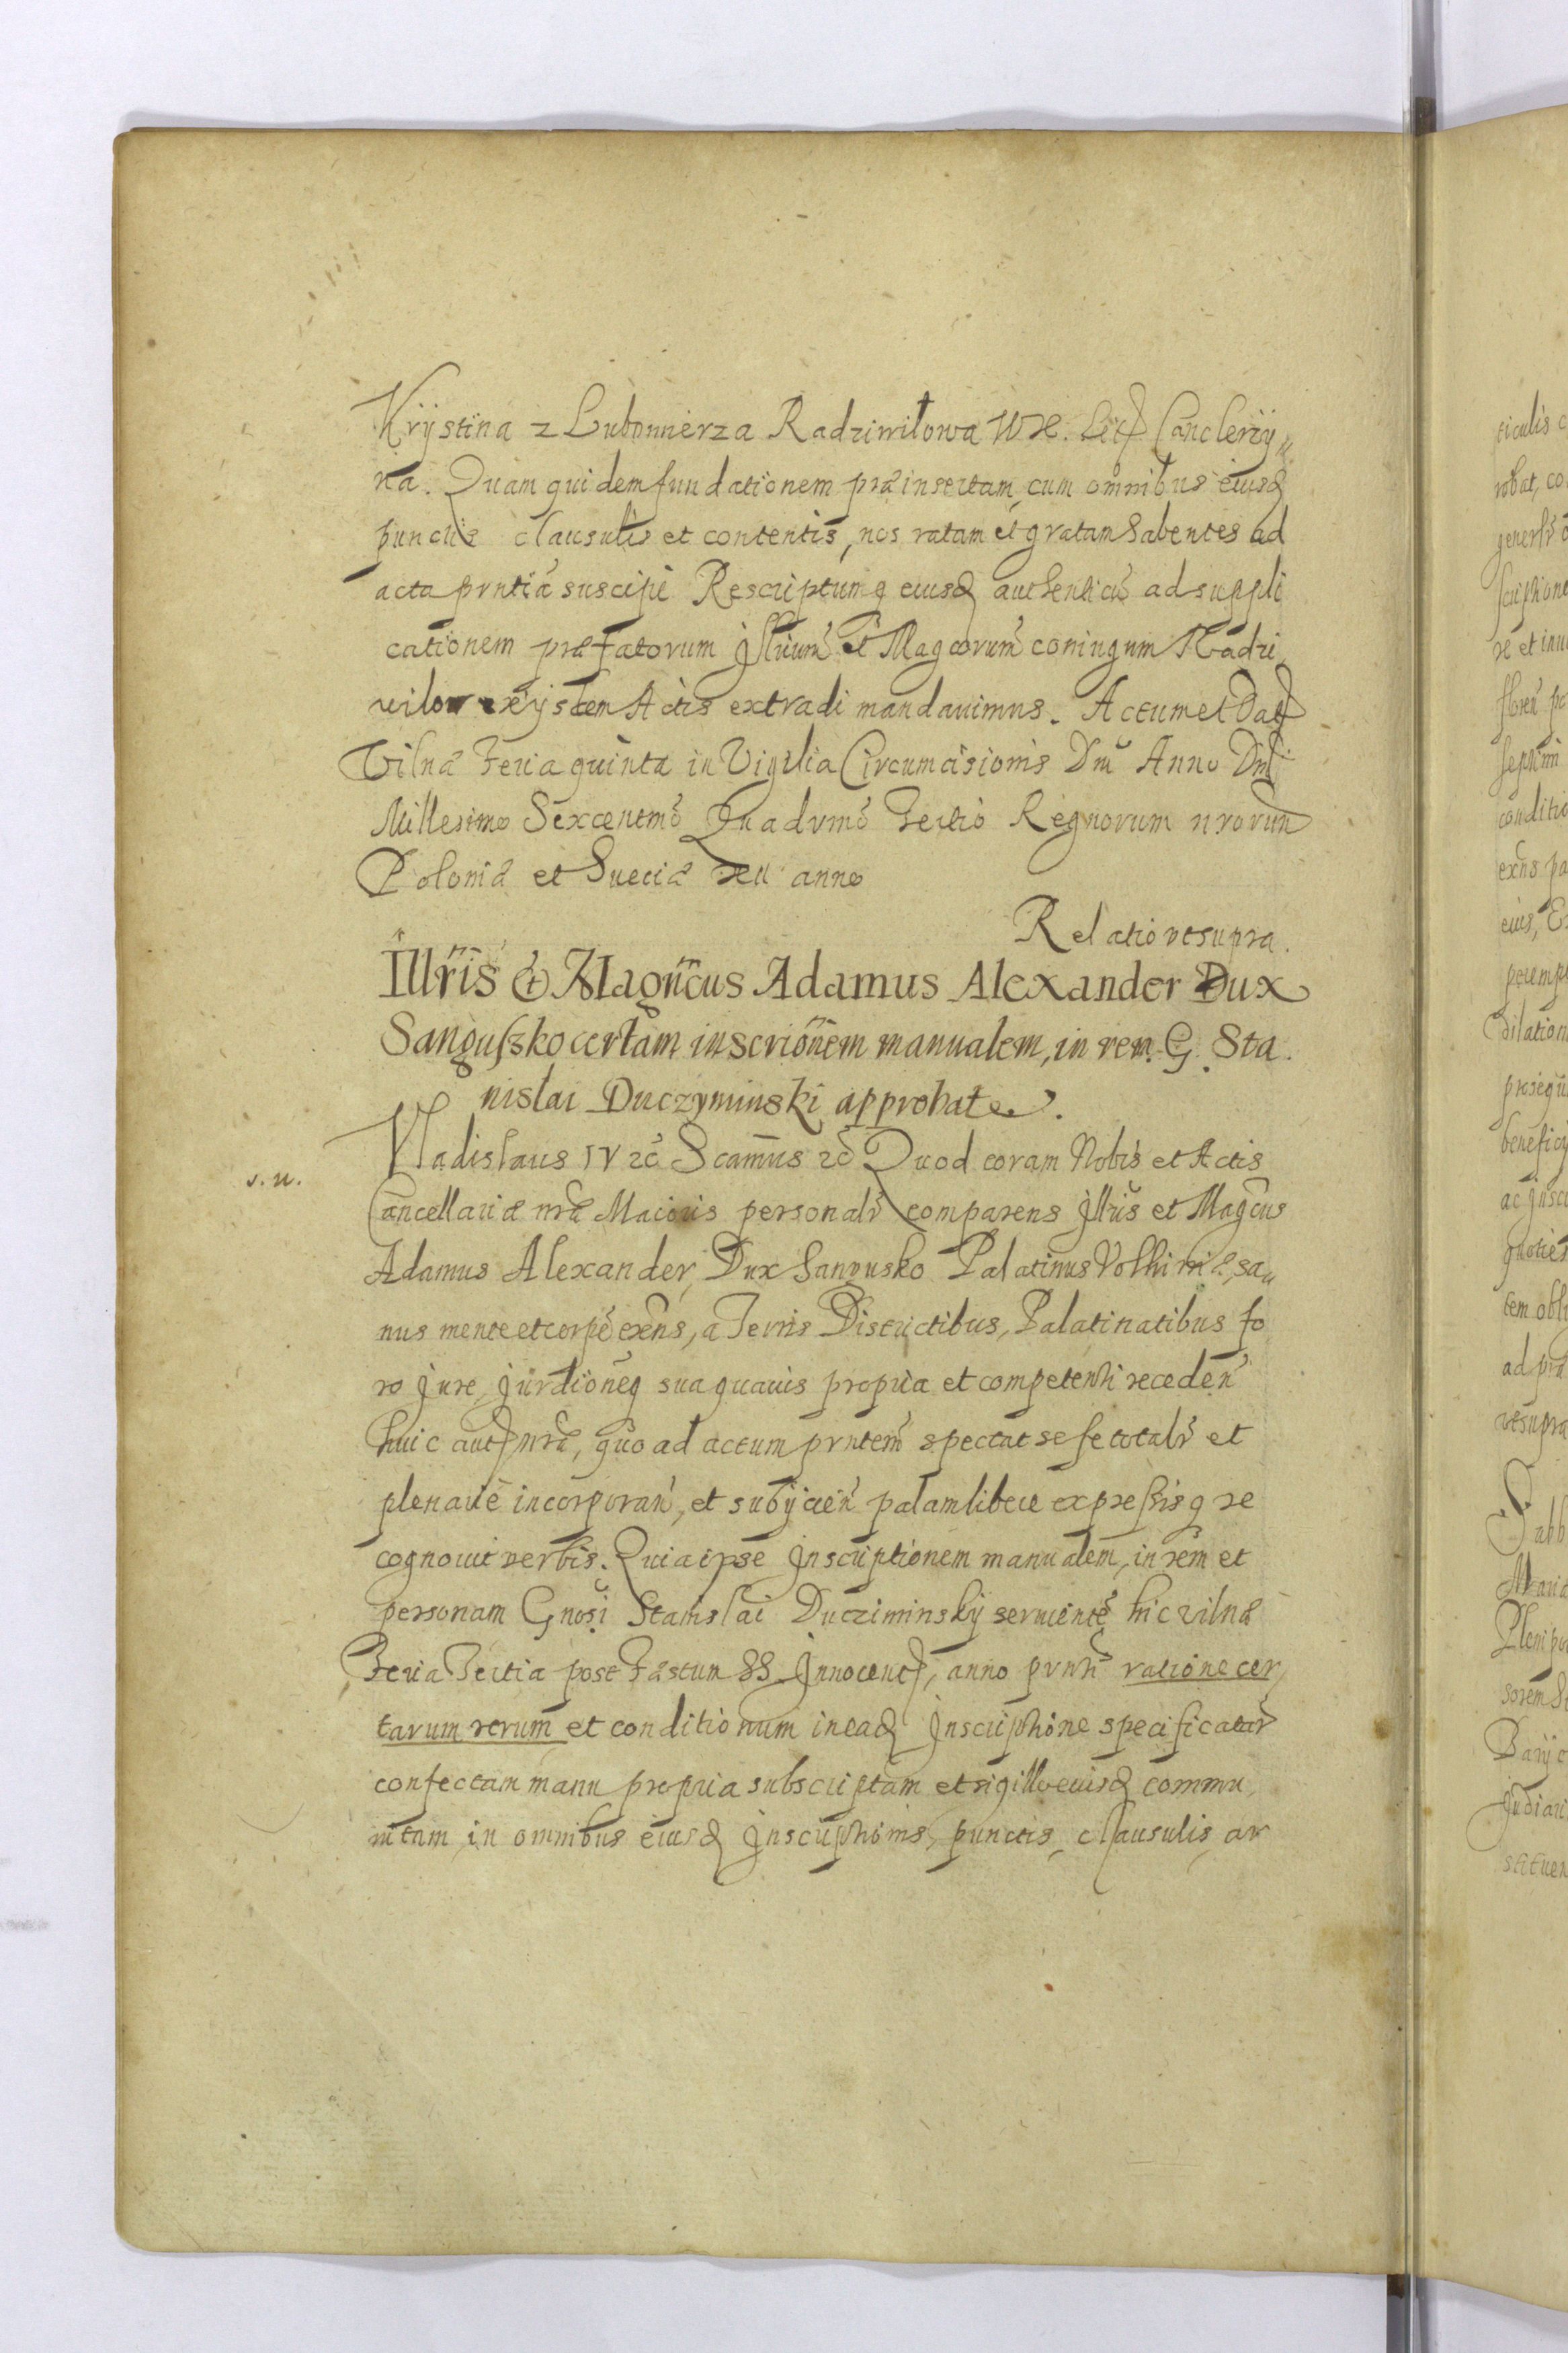 Krystina z Lubomierza Radziwiłowa W X. Lit Canclerzy„
na. Quam quidem fundationem præinsertam, cum omnibus eiusq
punctis clausulis et contentis, nos ratam et gratam habentes ad
acta pñtia suscipi Rescriptumq eiusq authenticũ ad suppli
cationem præfatorum Jllrium et Magcorum coniugum Radzi
vilow ex ijstem Actis extradi mandauimus. Actum et Dat
Vilnæ Feria quinta in Vigilia Circumcisionis Dni Anno Dni
Millesimo Sexcentmo Quadrmo Tertio Regnorum nrorum
Poloniæ et Sueciæ XII anno
Relatio ut supra.
Illris & Magncus Adamus Alexander Dux
Sanguszko certam inscrionem manualem, in rem G. Sta
nislai Duczyminski approbat.
Vladislaus IV zc Scamus zc Quod coram Nobis et Actis
s. n.
Cancellariæ nræ Maioris personalr comparens Jllris et Magcus
Adamus Alexander, Dux Sangusko Palatinus Volhiniæ, sa„
nus mente et corpe exens, a Terris Districtibus, Palatinatibus fo
ro Jure, Jurdioneq sua quauis propria et competenti receden
huic aut nræ, quo ad actum pñtem spectat sese totalr et
plenarie incorporan, et subijcien palam libere expressisq re
cognouit verbis. Quia ipse Inscriptionem manualem, in rem et
personam Gnosi Stanislai Ducziminskij seruient hic Vilnæ
Feria Tertia post Fæstum SS Innocent, anno pñti ratione cer
tarum rerum et conditionum in eaq Inscriptione specificatar
confectam manu propria subscriptam et sigillo eiusq commu
nitam, in omnibus eiusq Inscriptionis, punctis, clausulis, ar